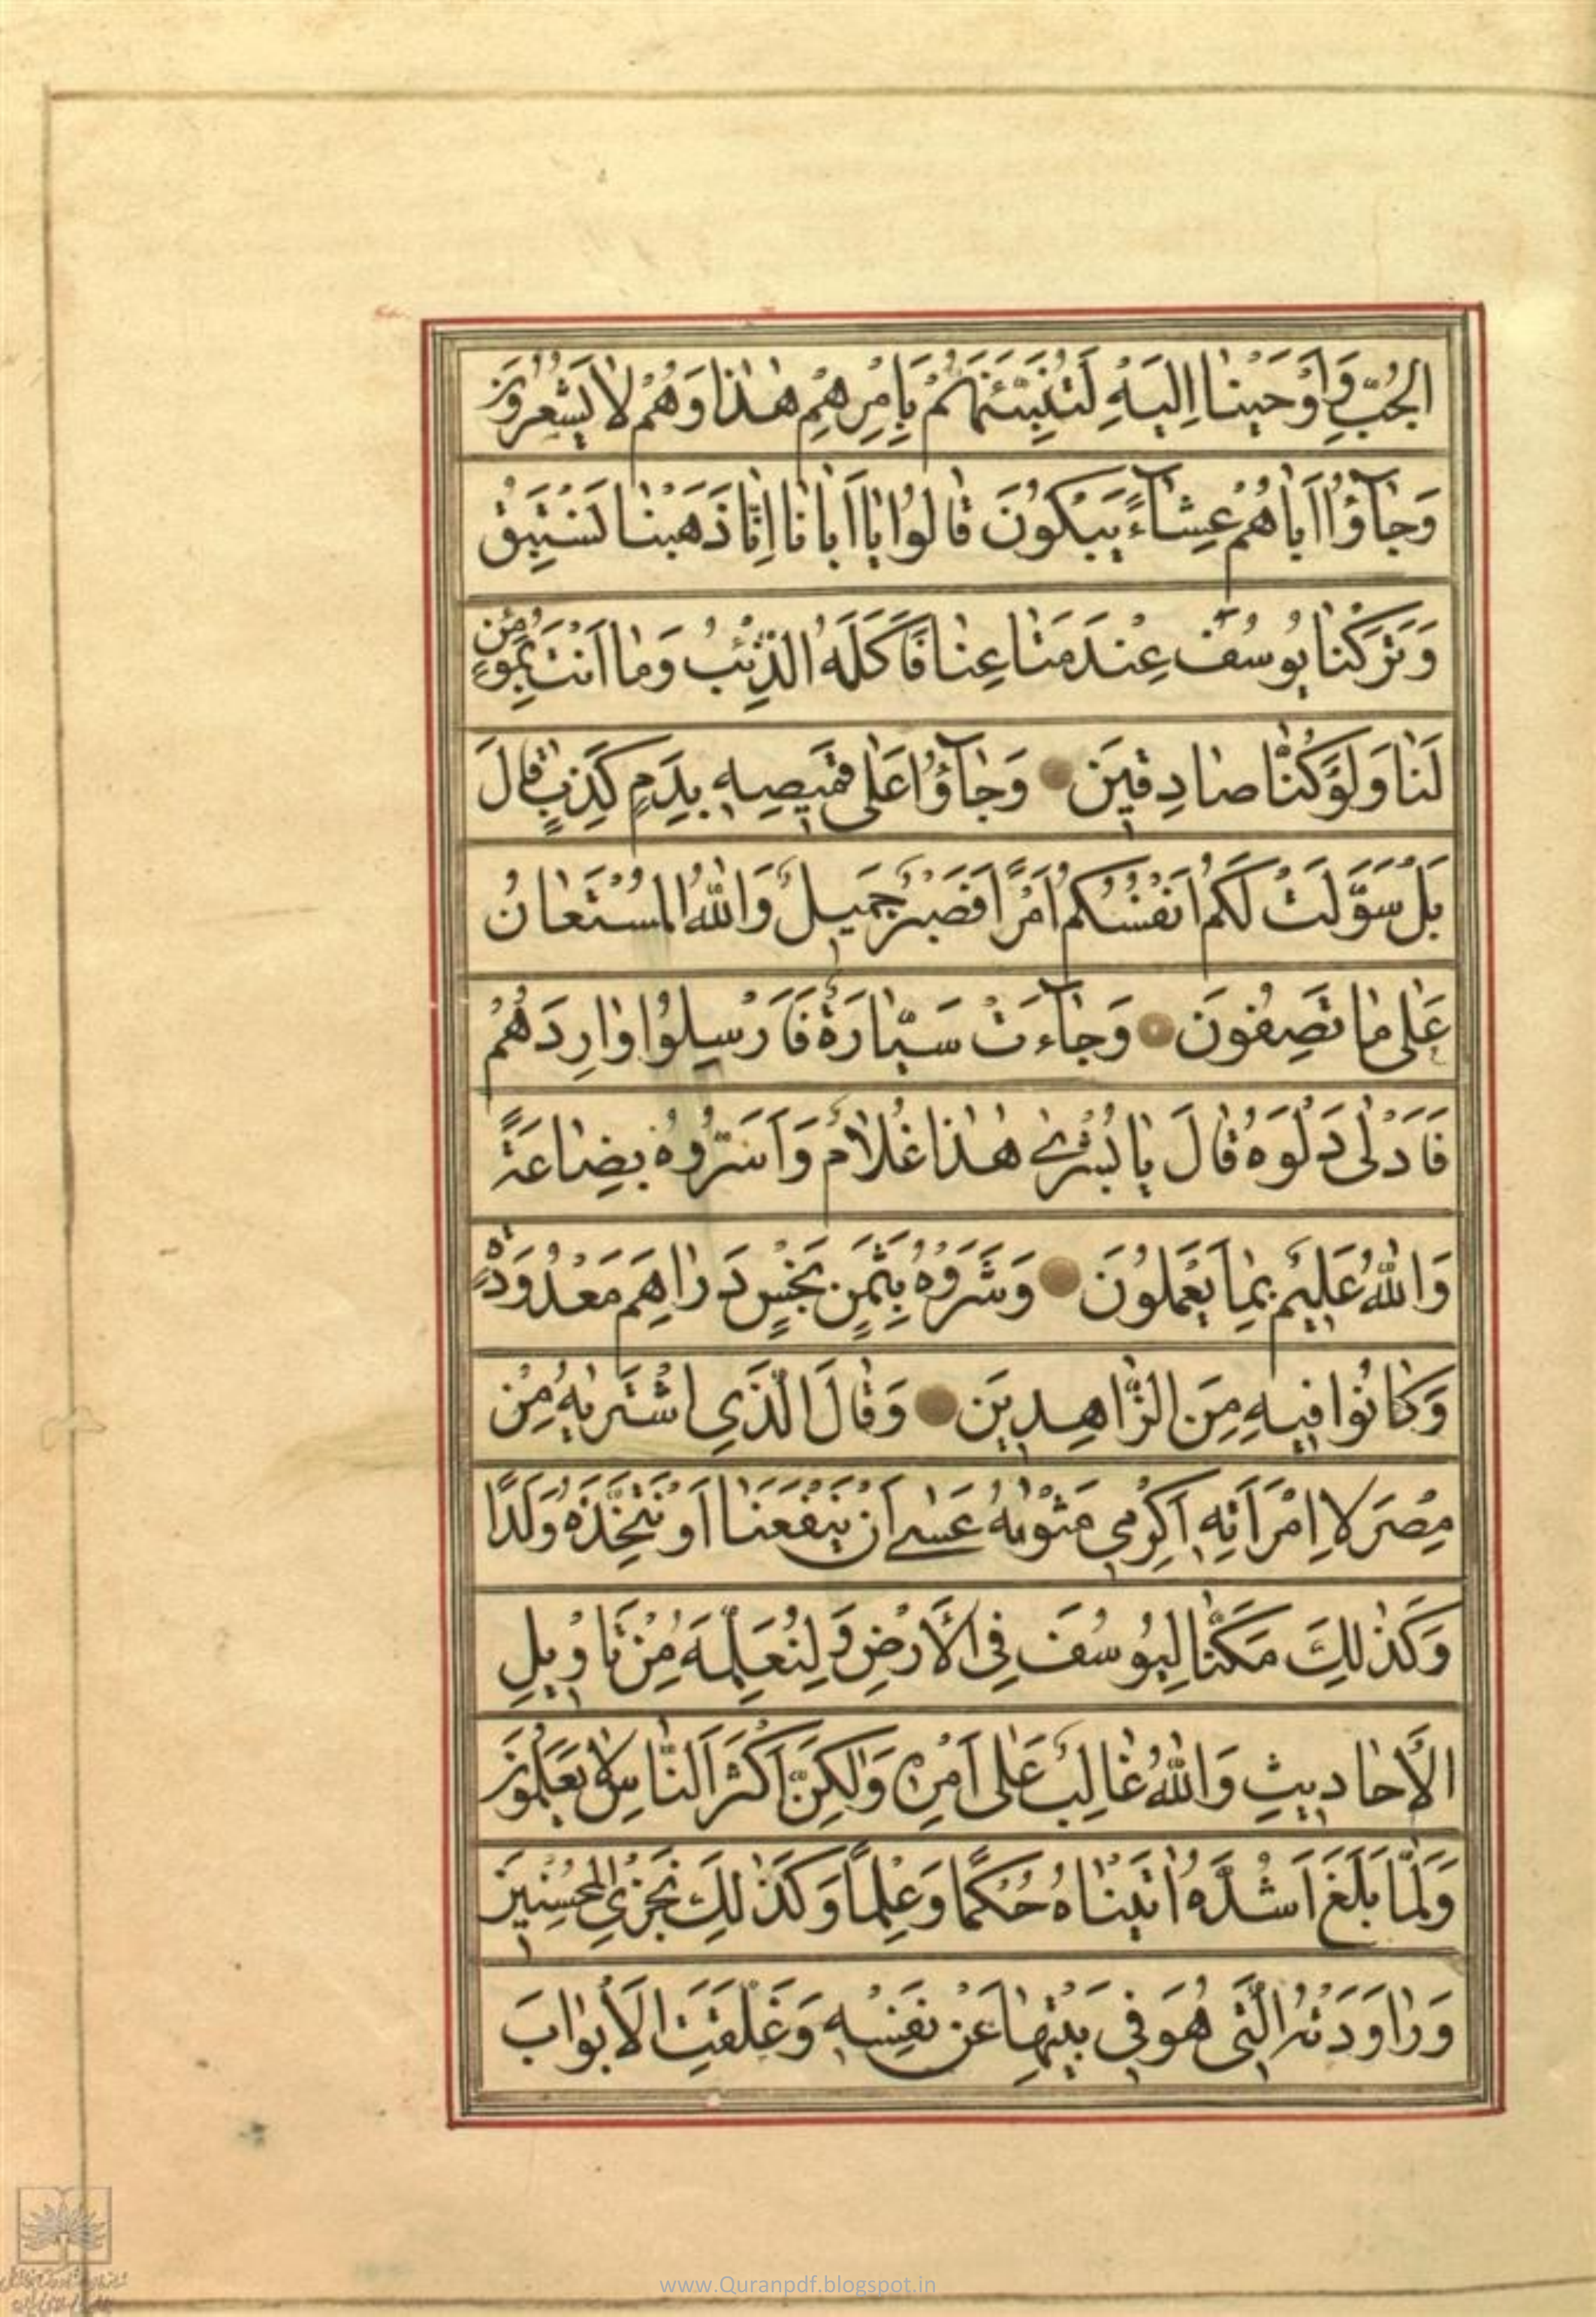 الْجُبِّ وَاَوْحَيْنٰا اِلَيْهِ لَتُنَبِّئَنَّهُمْ بِاَمْرِهِمْ هٰذٰا وَهُمْ لاٰ يَشْعُرُونَ
وَجٰآؤُا اَبٰاهُمْ عِشٰآءً يَبْكُونَ قٰالُوا يٰا اَبٰانٰا اِنّٰا ذَهَبْنٰا نَسْتَبِقُ
وَتَرَكْنٰا يُوسُفَ عِنْدَ مَتٰاعِنٰا فَاَكَلَهُ الذِّئْبُ وَمٰا اَنْتَ بِمُؤْمِنٍ
لَنٰا وَلَوْ كُنّٰا صٰادِقِينَ وَجٰآؤُا عَلٰى قَمِيصِهِ بِدَمٍ كَذِبٍ قٰالَ
بَلْ سَوَّلَتْ لَكُمْ اَنْفُسُكُمْ اَمْرًا فَصَبْرٌ جَمِيلٌ وَاللّٰهُ الْمُسْتَعٰانُ
عَلٰى مٰا تَصِفُونَ وَجٰآءَتْ سَيّٰارَةٌ فَاَرْسَلُوا وٰارِدَهُمْ
فَاَدْلٰى دَلْوَهُ قٰالَ يٰا بُشْرٰى هٰذٰا غُلاٰمٌ وَاَسَرُّوهُ بِضٰاعَةً
وَاللّٰهُ عَلِيمٌ بِمٰا يَعْمَلُونَ وَشَرَوْهُ بِثَمَنٍ بَخْسٍ دَرٰاهِمَ مَعْدُودَةٍ
وَكٰانُوا فِيهِ مِنَ الزّٰاهِدِينَ وَقٰالَ الَّذِي اشْتَرٰيهُ مِنْ
مِصْرَ لاِمْرَاَتِهِ اَكْرِمِي مَثْوٰيهُ عَسٰى اَنْ يَنْفَعَنٰا اَوْ نَتَّخِذَهُ وَلَدًا
وَكَذٰلِكَ مَكَّنّٰا لِيُوسُفَ فِي الْاَرْضِ وَلِنُعَلِّمَهُ مِنْ تَاْوِيلِ
الْاَحٰادِيثِ وَاللّٰهُ غٰالِبٌ عَلٰى اَمْرِهِ وَلٰكِنَّ اَكْثَرَ النّٰاسِ لاٰ يَعْلَمُونَ
وَلَمّٰا بَلَغَ اَشُدَّهُ اٰتَيْنٰاهُ حُكْمًا وَعِلْمًا وَكَذٰلِكَ نَجْزِي الْمُحْسِنِينَ
وَرٰاوَدَتْهُ الَّتِي هُوَ فِي بَيْتِهٰا عَنْ نَفْسِهِ وَغَلَّقَتِ الْاَبْوٰابَ
www.Quranpdf.blogspot.in